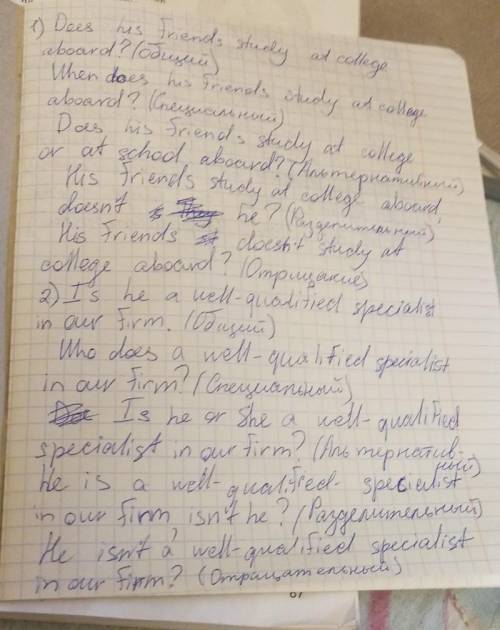 1) Does his friends study at college
aboard? (Общий)
When does his friends study at college
aboard? (Специальный)
Does his friends study at college
or at school aboard? (Альтернативный)
His friends study at college aboard,
doesn't he? (Разделительный)
His friends doesn't study at
college aboard? (Отрицание)
2) Is he a well-qualified specialist
in our firm. (Общий)
Who does a well-qualified specialist
in our firm? (Специальный)
Is he or She a well-qualified
specialist in our firm? (Альтернатив-
ный)
He is a well-qualified- specialist
in our firm, isn't he? (Разделительный)
He isn't a well-qualified specialist
in our firm? (Отрицательный)
67